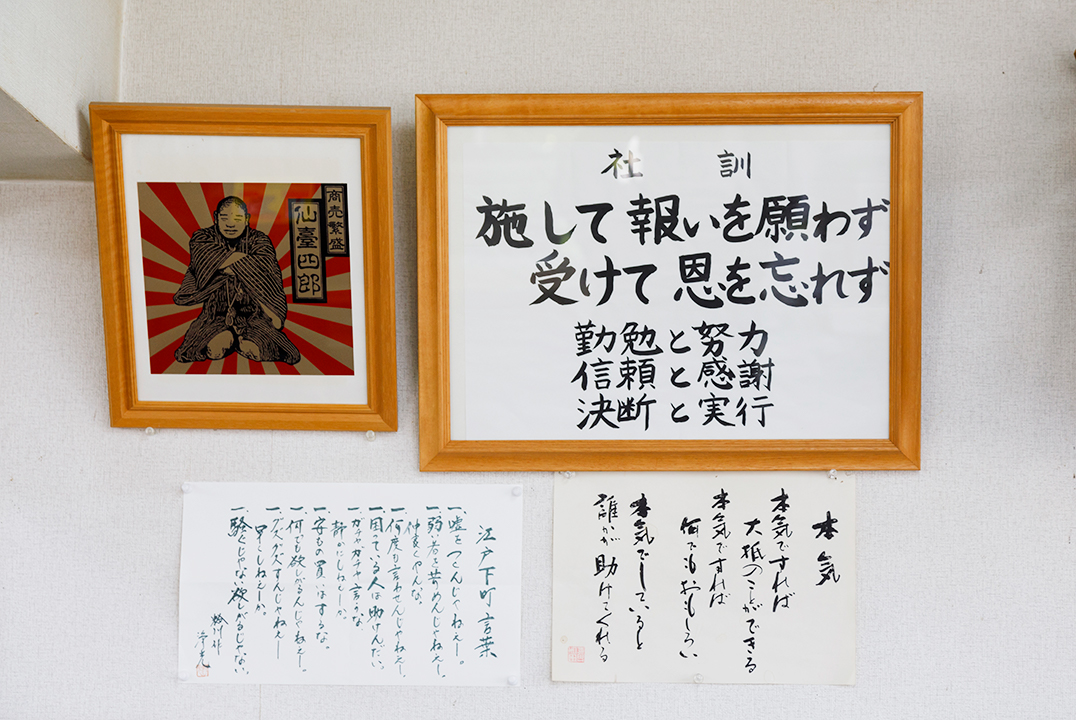 商売繁盛
仙臺四郎
社訓
施して報いを願わず
受けて恩を忘れず
勤勉と努力
信頼と感謝
決断と実行
江戸下町言葉
一、嘘をつくんじゃねえー。
一、弱い者を苛めんじゃねえー。
仲良くやんな。
一、何度も言わせんじゃねえー。
一、困っている人は助けんだい。
一、ガチャガチャ言うな
静かにしねえーか。
一、安もの買いはするな。
一、何でも欲しがるんじゃねえー。
一、グズグズすんじゃねえー
早くしねえーか。
一、騒ぐじゃない欲しがるじゃない。
本気
本気ですれば
大抵のことができる
本気ですれば
何でもおもしろい
本気でしていると
誰かが助けてくれる